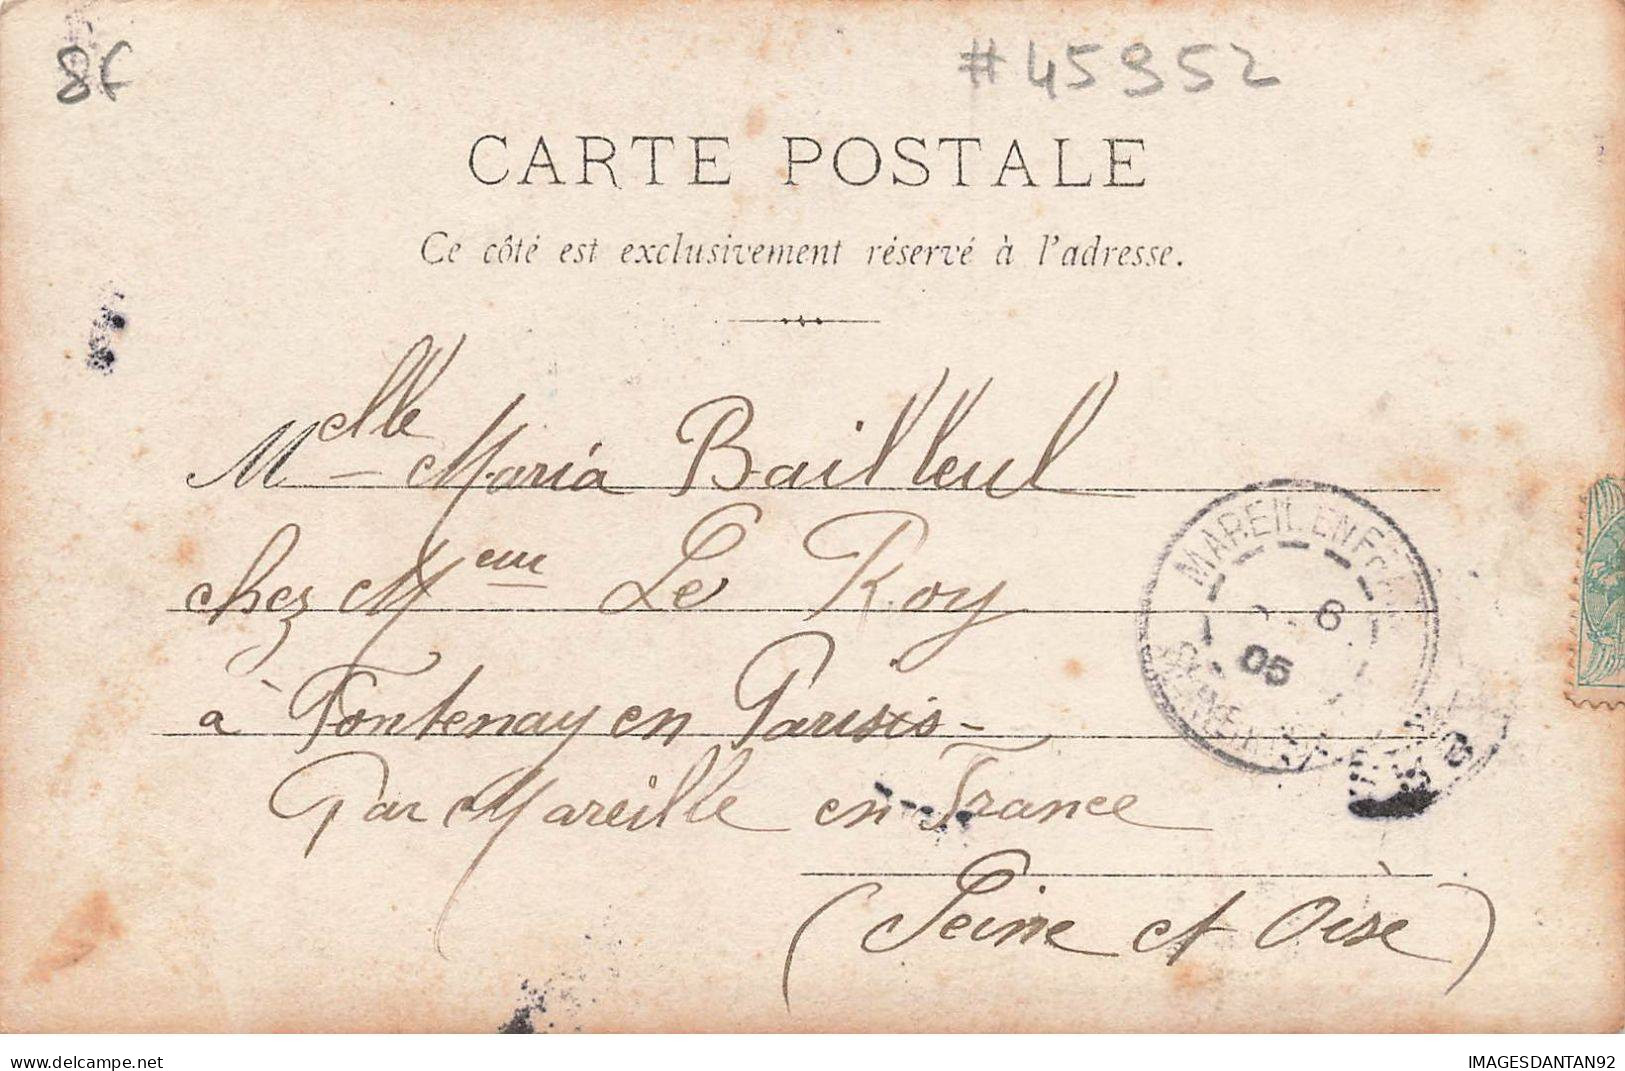 8f
#45952
CARTE POSTALE
Ce côté est exclusivement réservé à l'adresse.
Melle Maria Bailleul
chez Meur Le Roy
à Fontenay en Parisis-
Par Mareille en France
(Seine et Oise)
MAREIL EN FRAN
6
05
SEINE
delcampe.net
IMAGESDANTAN92